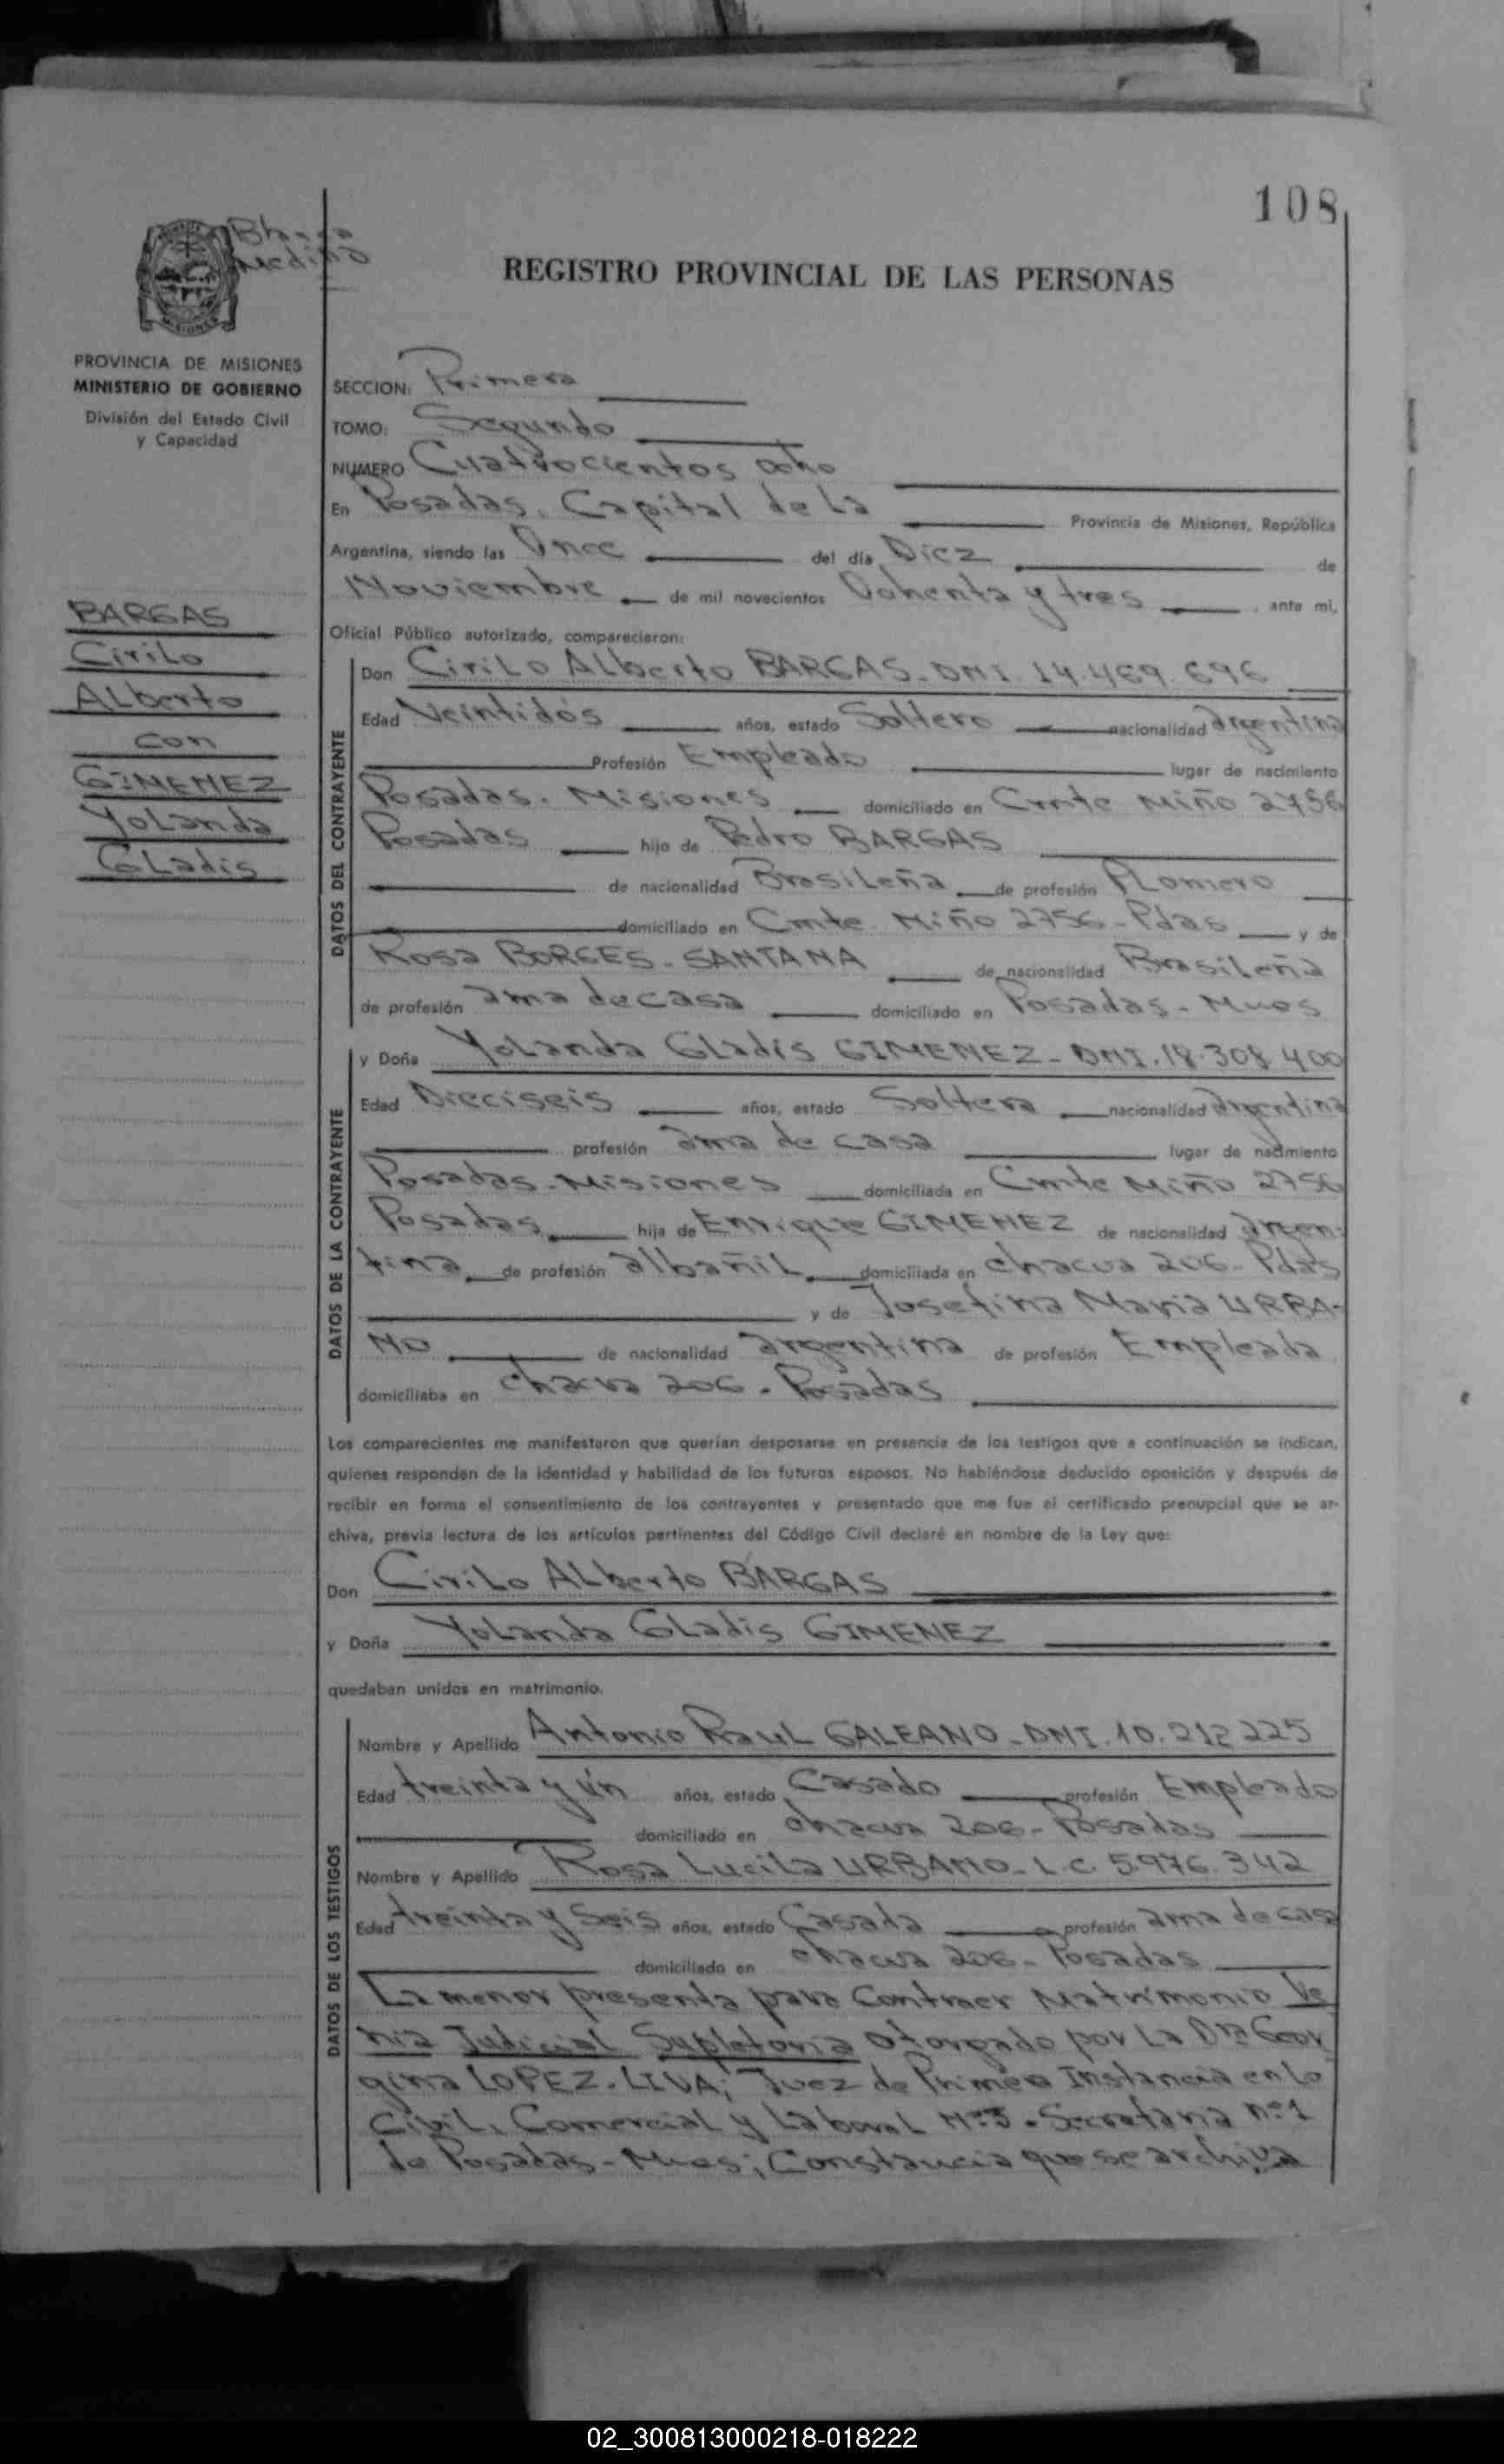 108
Medina
MISIONES
REGISTRO PROVINCIAL DE LAS PERSONAS
PROVINCIA DE MISIONES
MINISTERIO DE GOBIERNO
División del Estado Civil
y Capacidad
BARGAS
Cirilo
Alberto
con
GIMENEZ
Yolanda
Gladis
SECCION: Primera
TOMO: Segundo
NUMERO Cuatrocientos ocho
En Posadas, Capital de la Provincia de Misiones, República
Argentina, siendo las Once del día Diez de
Noviembre de mil novecientos Ochenta y tres, ante mi,
Oficial Público autorizado, comparecieron:
DATOS DEL CONTRAYENTE
Don Cirilo Alberto BARGAS - DNI. 14.469.696
Edad Veintidós años, estado Soltero nacionalidad argentina
Profesión Empleado lugar de nacimiento
Posadas. Misiones domiciliado en Cmte Miño 2756
Posadas hijo de Pedro BARGAS
de nacionalidad Brasileña de profesión Plomero
domiciliado en Cmte. Miño 2756 - Pdas y de
Rosa BORGES - SANTANA de nacionalidad Brasileña
de profesión ama de casa domiciliado en Posadas - Mnes
DATOS DE LA CONTRAYENTE
y Doña Yolanda Gladis GIMENEZ - DNI. 18.308.400
Edad Dieciseis años, estado Soltera nacionalidad argentina
profesión ama de casa lugar de nacimiento
Posadas - Misiones domiciliada en Cmte Miño 2756
Posadas hija de Enrique GIMENEZ de nacionalidad argen-
tina de profesión albañil domiciliada en chacra 206 - Pdas
y de Josefina Maria URBA-
NO de nacionalidad argentina de profesión Empleada
domiciliaba en chacra 206 - Posadas
Los comparecientes me manifestaron que querían desposarse en presencia de los testigos que a continuación se indican,
quienes responden de la identidad y habilidad de los futuros esposos. No habiéndose deducido oposición y después de
recibir en forma el consentimiento de los contrayentes y presentado que me fue el certificado prenupcial que se ar-
chiva, previa lectura de los artículos pertinentes del Código Civil declaré en nombre de la Ley que:
Don Cirilo Alberto BARGAS
y Doña Yolanda Gladis GIMENEZ
quedaban unidos en matrimonio.
DATOS DE LOS TESTIGOS
Nombre y Apellido Antonio Raul GALEANO - DNI. 10.212.225
Edad treinta y ún años, estado Casado profesión Empleado
domiciliado en chacra 206 - Posadas
Nombre y Apellido Rosa Lucila URBANO - L.C. 5.976.342
Edad treinta y Seis años, estado Casada profesión ama de casa
domiciliado en chacra 206 - Posadas
La menor presenta para Contraer Matrimonio Ve
nia Judicial Supletoria otorgado por la Dra Geor
gina LOPEZ - LIVA; Juez de Primera Instancia en lo
Civil, Comercial y Laboral Nº 3 - Secretaria nº 1
de Posadas - Mnes; Constancia que se archiva
02_300813000218-018222